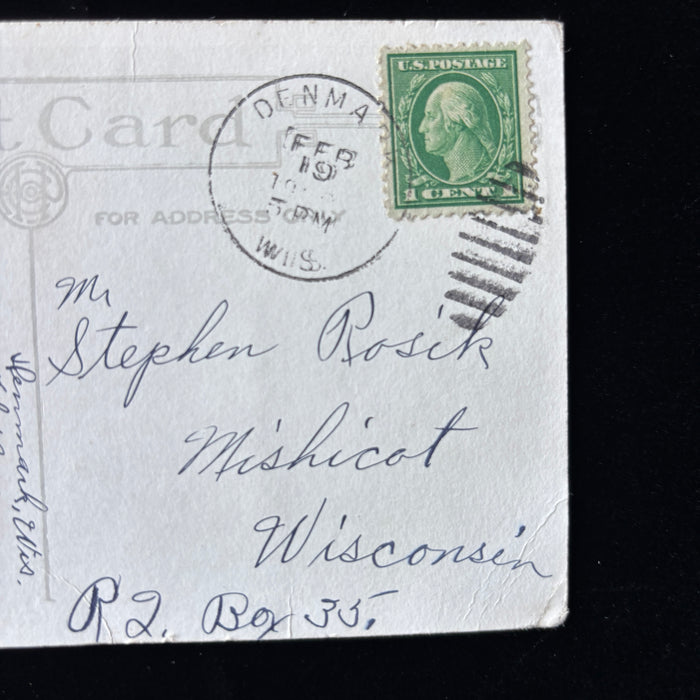 t Card
FOR ADDRESS ONLY
DENMA
FEB
19
5 PM
WIS.
U.S. POSTAGE
1 CENT 1
Mr
Stephen Rosik
Mishicot
Wisconsin
R2. Box 35.
Denmark, Wis.